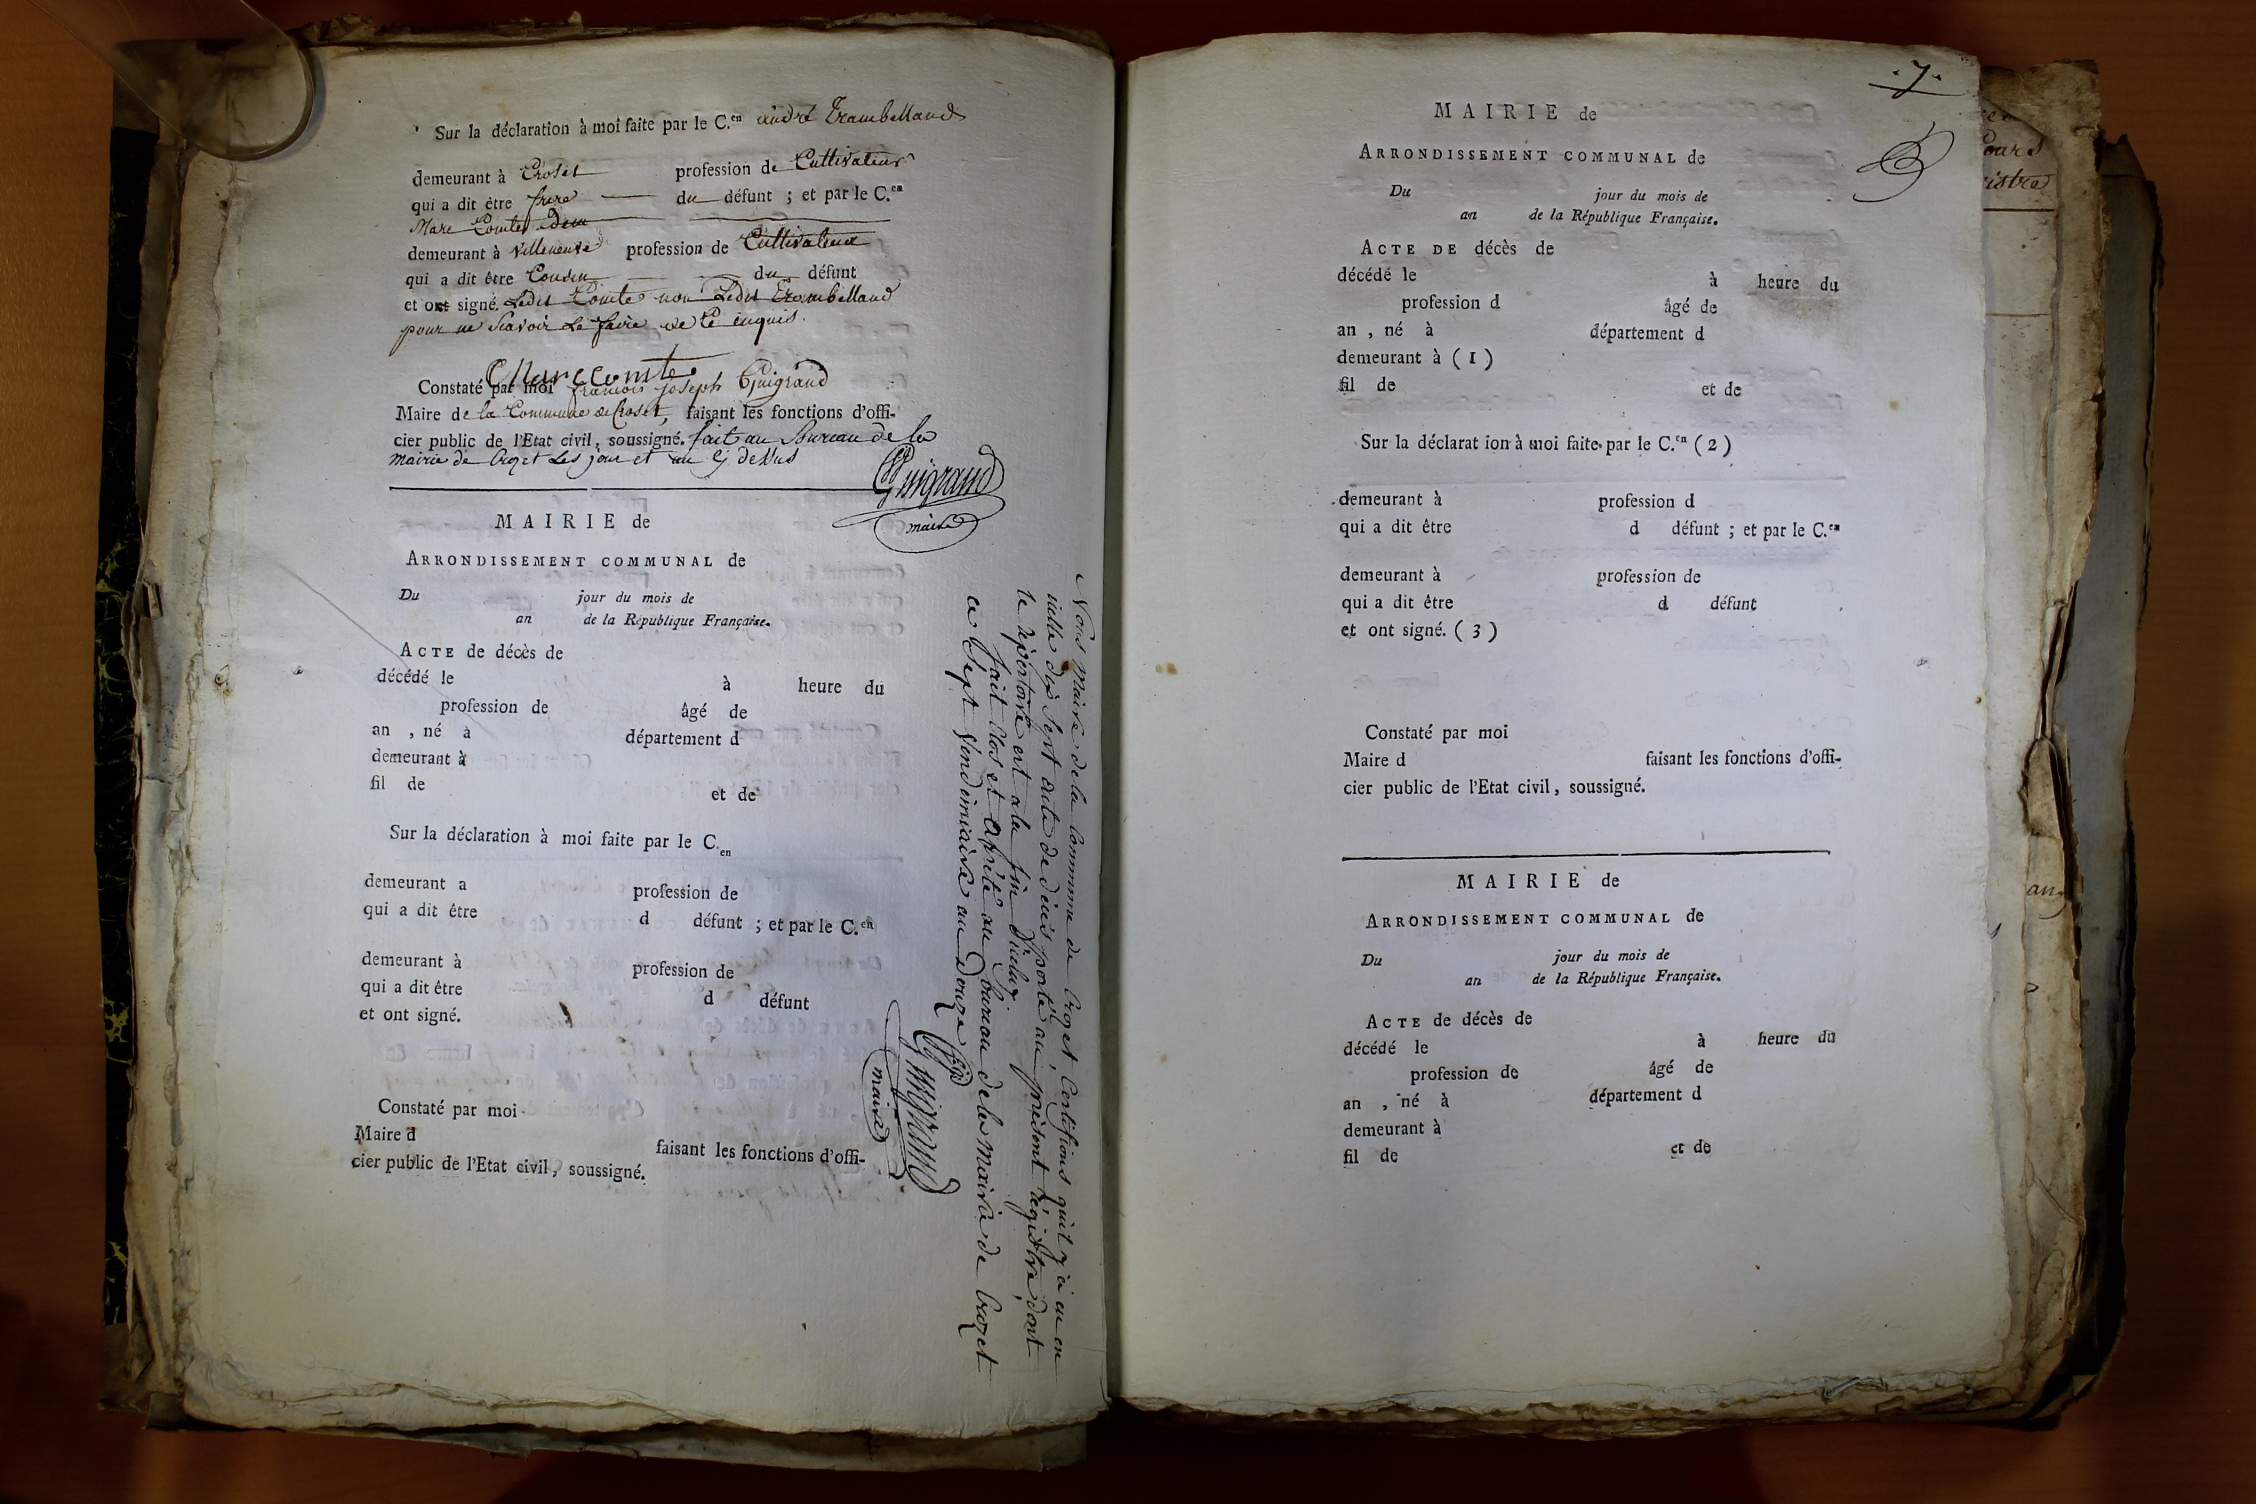 Sur la déclaration à moi faite par le C.en andré Trambelland
demeurant à Croset profession de Cultivateur
qui a dit être frere du défunt ; et par le C.en
Marc Comte dem
demeurant à villeneuve profession de Cultivateur
qui a dit être Cousin du défunt
et ont signé. Ledit Comte non Ledit Trambelland
pour ne Scavoir Le faire de Ce enquis.
Marc Comte
Constaté par moi francois joseph Guigrand
Maire de la Commune de Croset, faisant les fonctions d'offi-
cier public de l'Etat civil, soussigné. fait au Bureau de la
mairie de Crozet Les jour et an Cy dessus
Guigrand
maire
MAIRIE de
ARRONDISSEMENT COMMUNAL de
Du jour du mois de
an de la République Française.
ACTE de décès de
décédé le à heure du
profession de âgé de
an , né à département d
demeurant à
fil de et de
Sur la déclaration à moi faite par le C.en
demeurant a profession de
qui a dit être d défunt ; et par le C.en
demeurant à profession de
qui a dit être d défunt
et ont signé.
Constaté par moi
Maire d faisant les fonctions d'offi-
cier public de l'Etat civil, soussigné.
Nous Maire de la Commune de Crozet, Certifions qu'il y a eu en
icelle dix Sept acte de décès porté au présent régistre, dont
le répertoire est a la fin d'icelui.
fait Clos et Arrêté au Bureau de la Mairie de Crozet
ce Sept Vendemiaire an Douze
Guigrand
maire
.7.
MAIRIE de
ARRONDISSEMENT COMMUNAL de
Du jour du mois de
an de la République Française.
ACTE DE décès de
décédé le à heure du
profession d âgé de
an , né à département d
demeurant à (1)
fil de et de
Sur la déclarat ion à moi faite par le C.en (2)
demeurant à profession d
qui a dit être d défunt ; et par le C.en
demeurant à profession de
qui a dit être d défunt
et ont signé. (3)
Constaté par moi
Maire d faisant les fonctions d'offi-
cier public de l'Etat civil, soussigné.
MAIRIE de
ARRONDISSEMENT COMMUNAL de
Du jour du mois de
an de la République Française.
ACTE de décès de
décédé le à heure du
profession de âgé de
an , né à département d
demeurant à
fil de et de